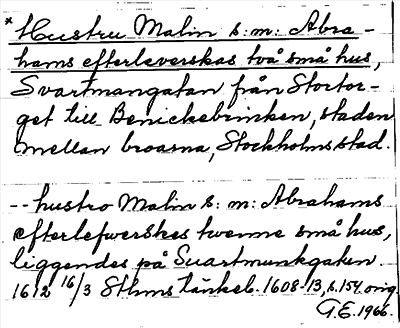 * Hustru Malin s: m: Abra-
hams efterleverskas två små hus,
Svartmangatan från Stortor-
get till Benickebrinken, staden
mellan broarna, Stockholms stad.
-- hustro Malin s: m: Abrahams
efterlefwerskes twenne små hus,
liggendes på Suartmunkgaten.
1612 16/3 Sthms tänkeb. 1608-13, s. 154. orig.
G.E. 1966.